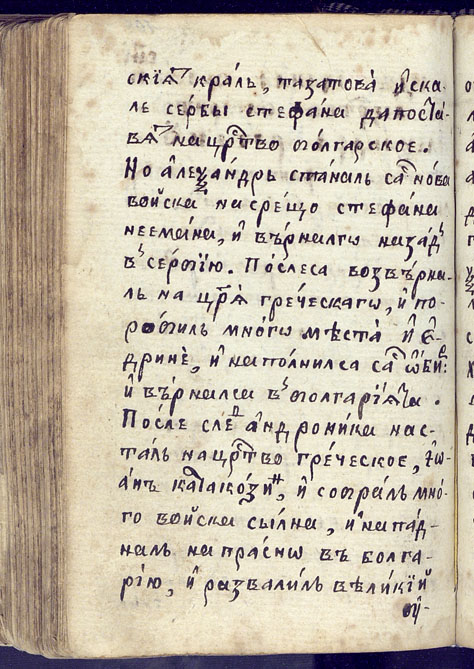 скїѧ краль, тазатова̀ и҆ска-
ле се́рбы стефа́на дапоста́-
вѧ на црⷭ҇тво болгарское.
Но а҆леѯа́ндрь ста́наль са но́ва
войска на сре́що стефа́на
неема́на, и҆ въ́рналго наза́д
в се́рбїю. По́слеса возвъ́рна-
ль на црѧ̀ гре́ческаго, и҆ по-
робиль мно́гѡ мѣста̀ и҆ є҆-
дринѐ, и҆ напо́лнилса са
и҆ въ́рналса в болга́рїѧ.
По́сле сле а҆ндрони́ка нас-
та́ль на црⷭ҇тво гре́ческое, і҆ѡ-
а́нъ катакози́н, и҆ собра́ль мно́-
го войска сы́лна, и҆ напа́д-
наль на пра́снѡ въ болга́-
рїю, и҆ развали́ль вели́кїй